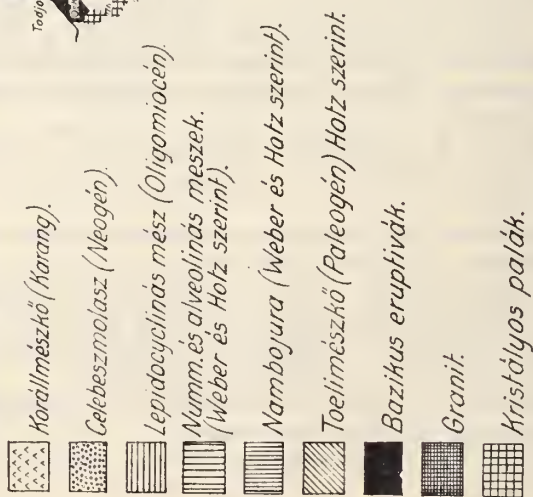 Tadjo
Korállmészkő (Karang).
Celebeszmolasz (Neogén).
Lepidocyclinás mész (Oligomiocén).
Numm. és alveolinás meszek.
(Weber és Hotz szerint).
Nambojura (Weber és Hotz szerint).
Toelimészkő (Paleogén) Hotz szerint.
Bazikus eruptivák.
Granit.
Kristályos palák.